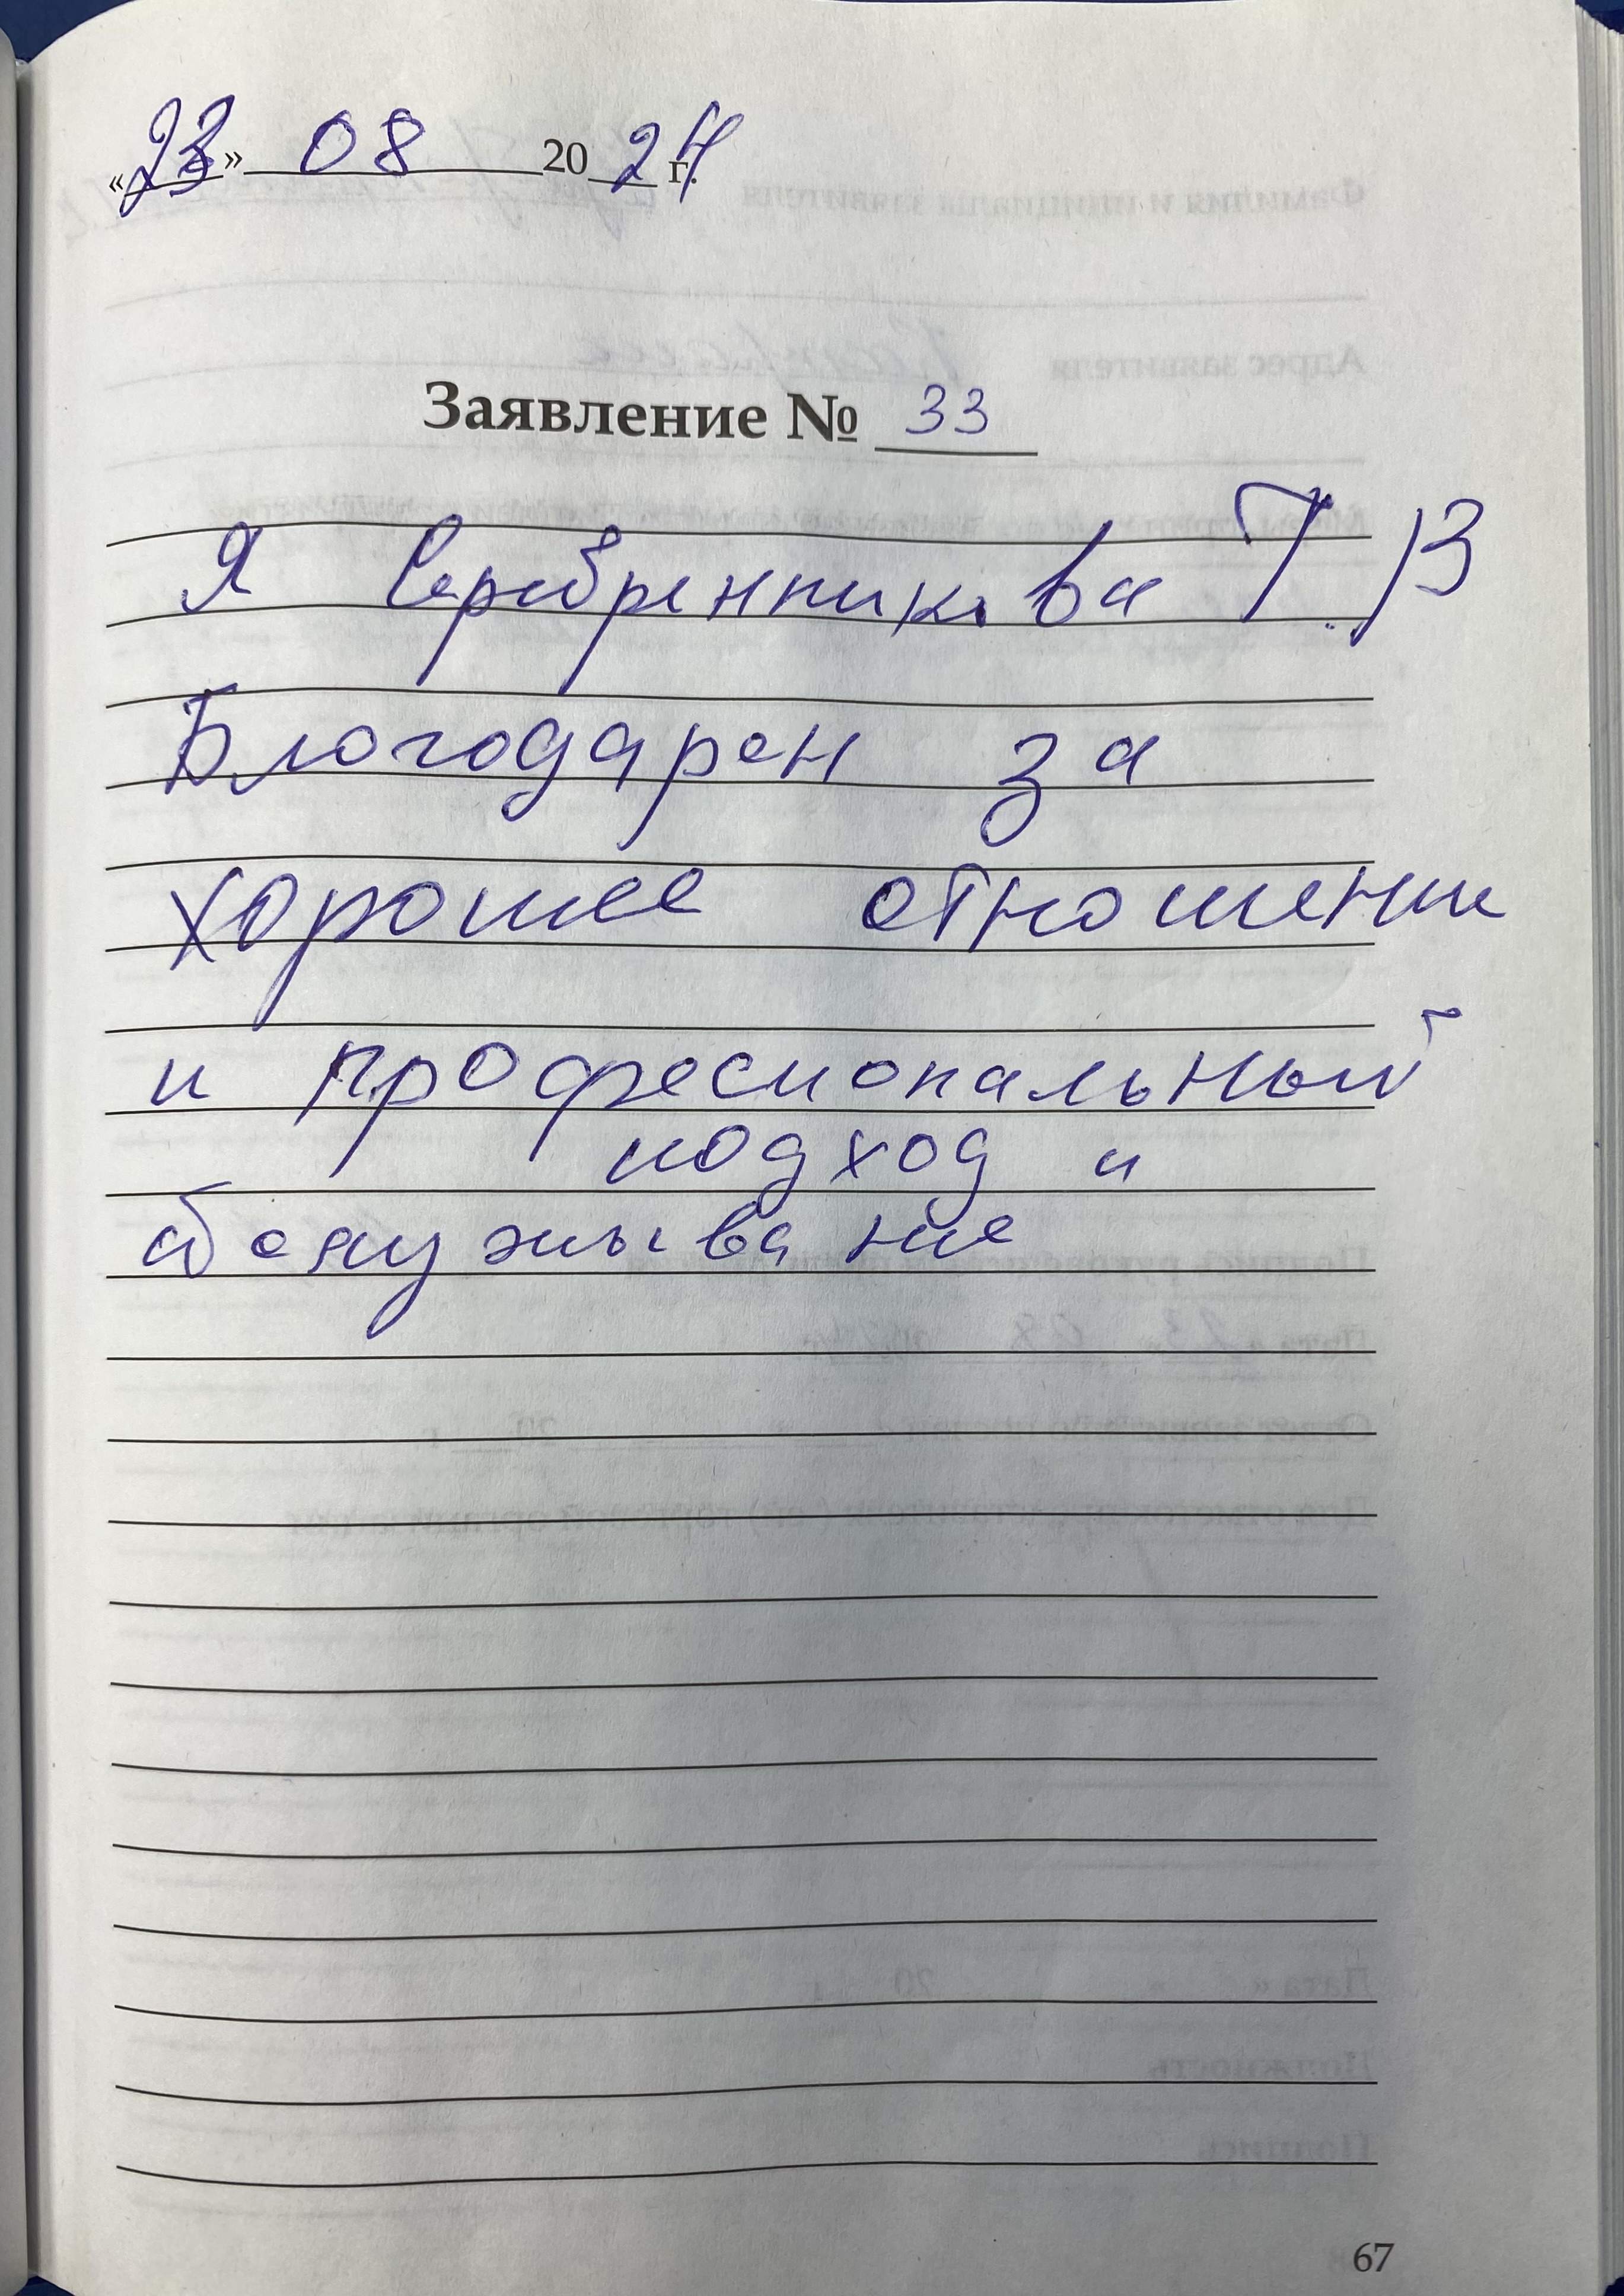 «23» 08 2024 г.
Заявление № 33
Я Серебренникова Т.В
Благодарен за
хорошее отношение
и професиональный
подход и
обслуживание
67